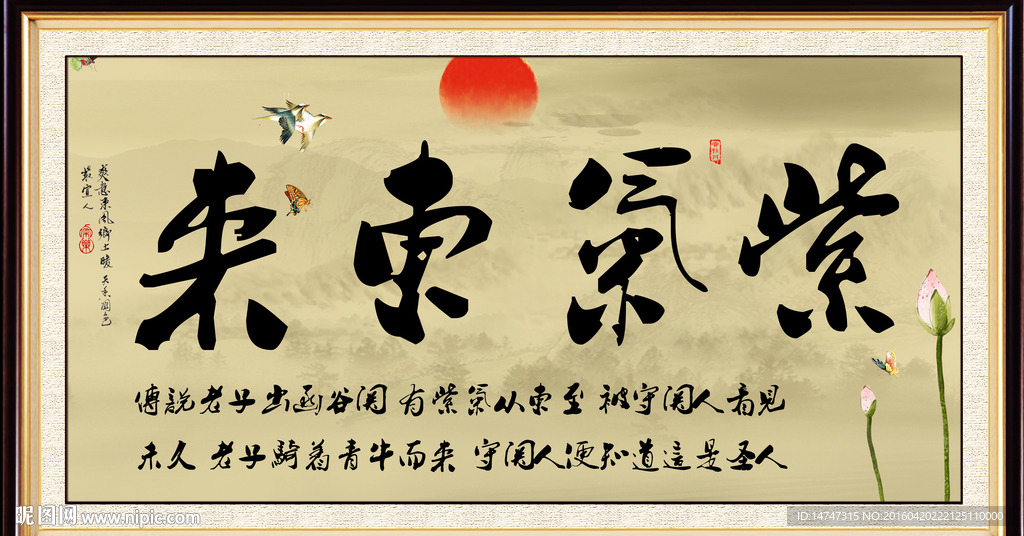 紫氣東来
傳說老子出函谷関 有紫氣从東至 被守関人看見
未久 老子騎着青牛而来 守関人便知道這是圣人
爽意東風鄉土暖 天香國色
最宜人
昵图网 www.nipic.com
ID:14747315 NO:20160420222125110000